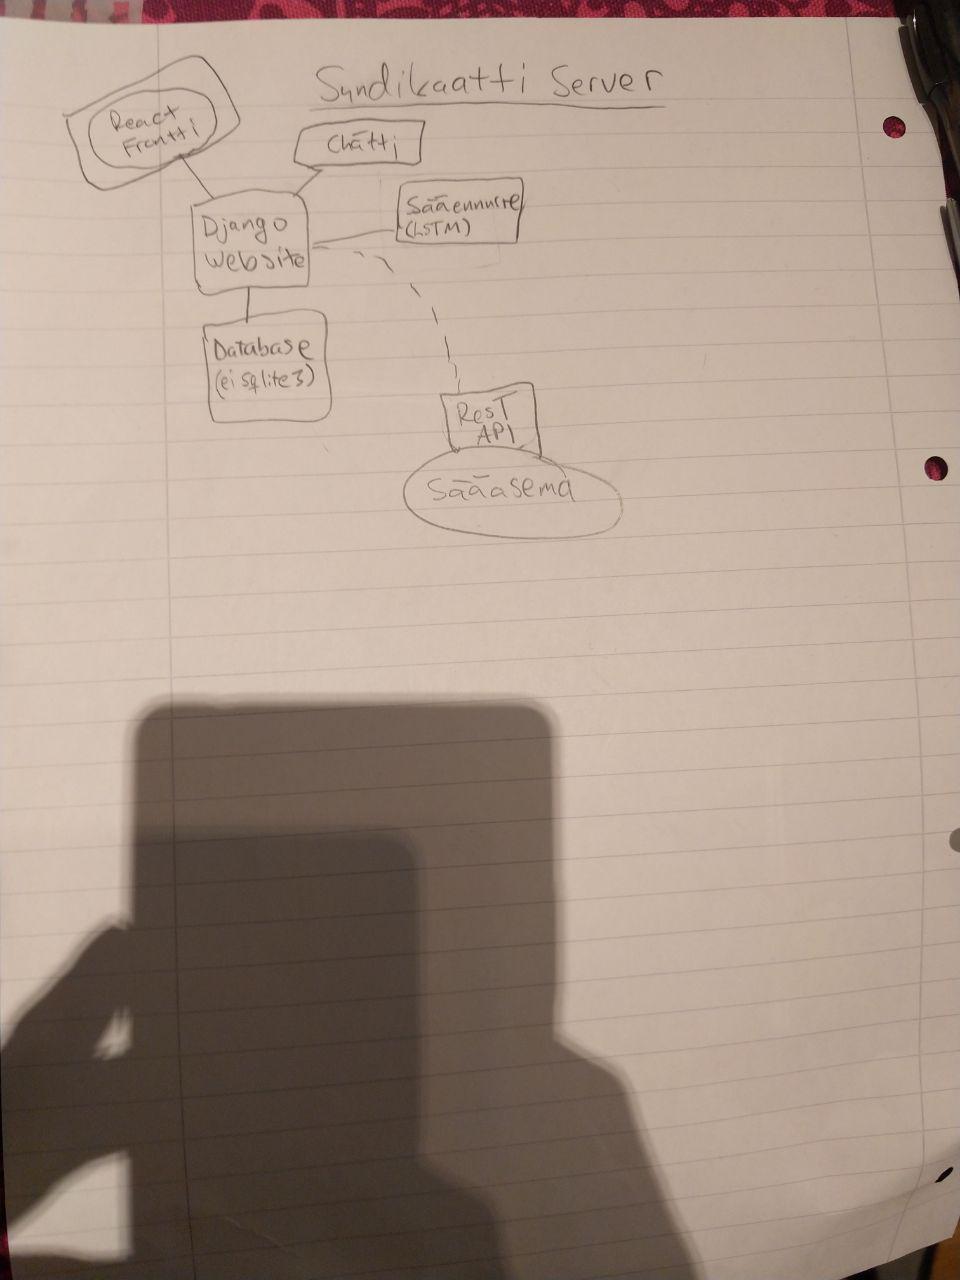 Syndikaatti Server
React
Frontti
Chätti
Django
Website
Sääennuste
(LSTM)
Database
(ei sqlite3)
ResT
API
Sääasema